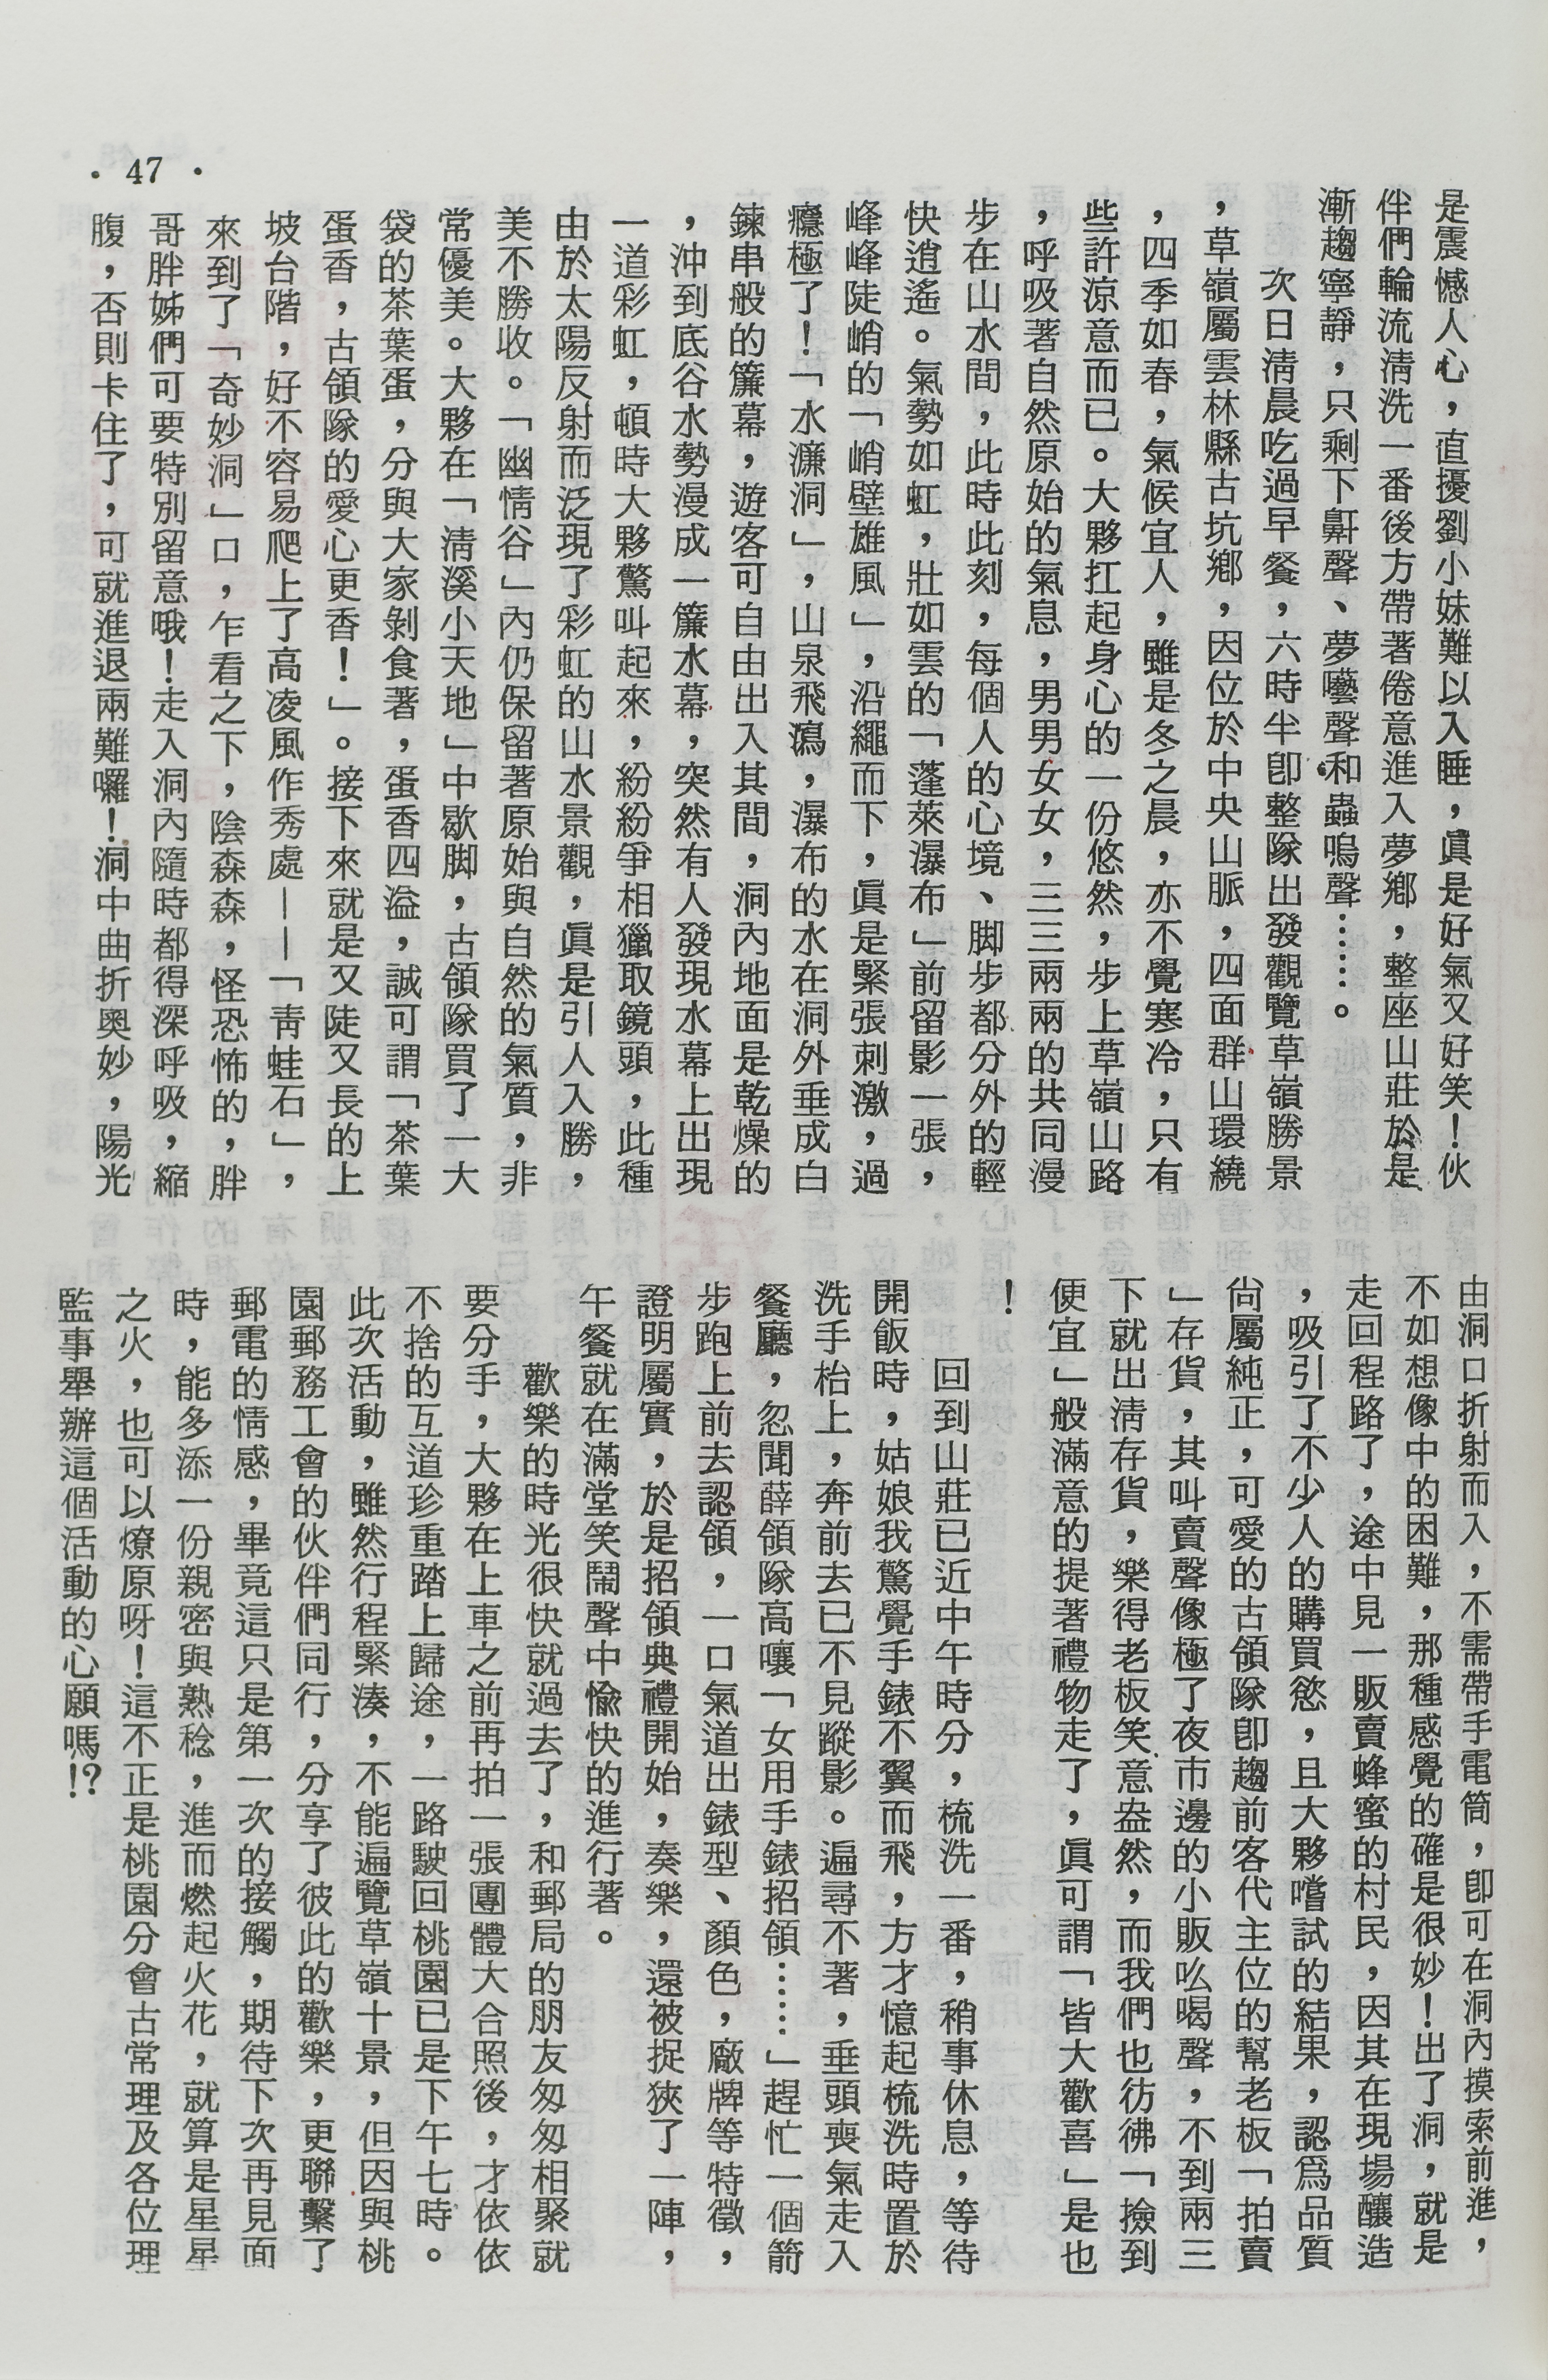 · 47 ·
是震憾人心，直擾劉小妹難以入睡，眞是好氣又好笑！伙
伴們輪流淸洗一番後方帶著倦意進入夢鄉，整座山莊於是
漸趨寧靜，只剩下鼾聲、夢囈聲和蟲嗚聲……。
次日淸晨吃過早餐，六時半卽整隊出發觀覽草嶺勝景
，草嶺屬雲林縣古坑鄉，因位於中央山脈，四面群山環繞
，四季如春，氣候宜人，雖是冬之晨，亦不覺寒冷，只有
些許涼意而已。大夥扛起身心的一份悠然，步上草嶺山路
，呼吸著自然原始的氣息，男男女女，三三兩兩的共同漫
步在山水間，此時此刻，每個人的心境、脚步都分外的輕
快逍遙。氣勢如虹，壯如雲的「蓬萊瀑布」前留影一張，
峰峰陡峭的「峭壁雄風」，沿繩而下，眞是緊張刺激，過
癮極了！「水濂洞」，山泉飛瀉，瀑布的水在洞外垂成白
鍊串般的簾幕，遊客可自由出入其間，洞內地面是乾燥的
，沖到底谷水勢漫成一簾水幕，突然有人發現水幕上出現
一道彩虹，頓時大夥驚叫起來，紛紛爭相獵取鏡頭，此種
由於太陽反射而泛現了彩虹的山水景觀，眞是引人入勝，
美不勝收。「幽情谷」內仍保留著原始與自然的氣質，非
常優美。大夥在「淸溪小天地」中歇脚，古領隊買了一大
袋的茶葉蛋，分與大家剝食著，蛋香四溢，誠可謂「茶葉
蛋香，古領隊的愛心更香！」。接下來就是又陡又長的上
坡台階，好不容易爬上了高凌風作秀處——「靑蛙石」，
來到了「奇妙洞」口，乍看之下，陰森森，怪恐怖的，胖
哥胖姊們可要特別留意哦！走入洞內隨時都得深呼吸，縮
腹，否則卡住了，可就進退兩難囉！洞中曲折奥妙，陽光
由洞口折射而入，不需帶手電筒，卽可在洞內摸索前進，
不如想像中的困難，那種感覺的確是很妙！出了洞，就是
走回程路了，途中見一販賣蜂蜜的村民，因其在現場釀造
，吸引了不少人的購買慾，且大夥嚐試的結果，認爲品質
尙屬純正，可愛的古領隊卽趨前客代主位的幫老板「拍賣
」存貨，其叫賣聲像極了夜市邊的小販吆喝聲，不到兩三
下就出淸存貨，樂得老板笑意盎然，而我們也彷彿「撿到
便宜」般滿意的提著禮物走了，眞可謂「皆大歡喜」是也
！
回到山莊已近中午時分，梳洗一番，稍事休息，等待
開飯時，姑娘我驚覺手錶不翼而飛，方才憶起梳洗時置於
洗手枱上，奔前去已不見蹤影。遍尋不著，垂頭喪氣走入
餐廳，忽聞薛領隊高嚷「女用手錶招領……」趕忙一個箭
步跑上前去認領，一口氣道出錶型、顏色，廠牌等特徵，
證明屬實，於是招領典禮開始，奏樂，還被捉狹了一陣，
午餐就在滿堂笑鬧聲中愉快的進行著。
歡樂的時光很快就過去了，和郵局的朋友匆匆相聚就
要分手，大夥在上車之前再拍一張團體大合照後，才依依
不捨的互道珍重踏上歸途，一路駛回桃園已是下午七時。
此次活動，雖然行程緊湊，不能遍覽草嶺十景，但因與桃
園郵務工會的伙伴們同行，分享了彼此的歡樂，更聯繫了
郵電的情感，畢竟這只是第一次的接觸，期待下次再見面
時，能多添一份親密與熟稔，進而燃起火花，就算是星星
之火，也可以燎原呀！這不正是桃園分會古常理及各位理
監事舉辦這個活動的心願嗎!?